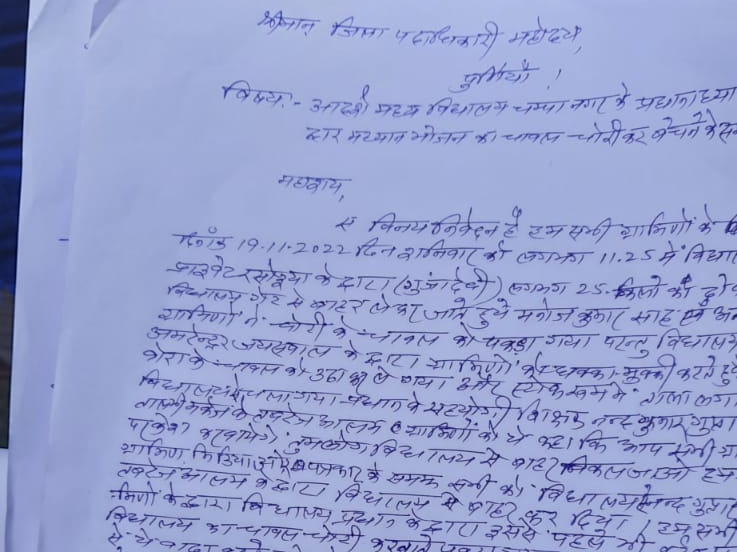 श्रीमान जिला पदाधिकारी महोदय,
पुर्णियाँ !
विषय:- आदर्श मध्य विद्यालय चम्पानगर के प्रधानाध्या
द्वार मध्यान भोजन का चावल चोरी कर बेचने के
महाशय,
विनय निवेदन है हम सभी ग्रामिणों के
दिनाँक 19.11.2022 दिन शनिवार को लगभग 11.25 में विद्याल
प्राइवेट रसोइया के द्वारा (गुंजा देवी) लगभग 25 किलो की
विद्यालय गेट से बाहर लेकर जाते हुये मनोज कुमार साह एवं
ग्रामिणों ने चोरी के चावल को पकड़ा गया परन्तु विद्यालय
अमरेन्द्र जयसवाल के द्वारा ग्रामिणों को धक्का-मुक्की करते हुए
बोरा के चावल को उठा कर ले गया और स्टोक रूम में ताला लगा
विद्यालय से चला गया। प्रधान के सहयोगी शिक्षक नन्द कुमार गुप्ता
तबरेज आलम ग्रामिणों को ये कहा कि आप सभी
तुमलोग विद्यालय से बाहर निकल जाओ हम
के समक्ष सभी को विद्यालय नन्द गुप्ता
तबरेज आलम के द्वारा विद्यालय से बाहर कर दिया। हम सभी
मिणों के द्वारा विद्यालय प्रधान के द्वारा इससे पहले भी
विद्यालय का चावल चोरी करवाते